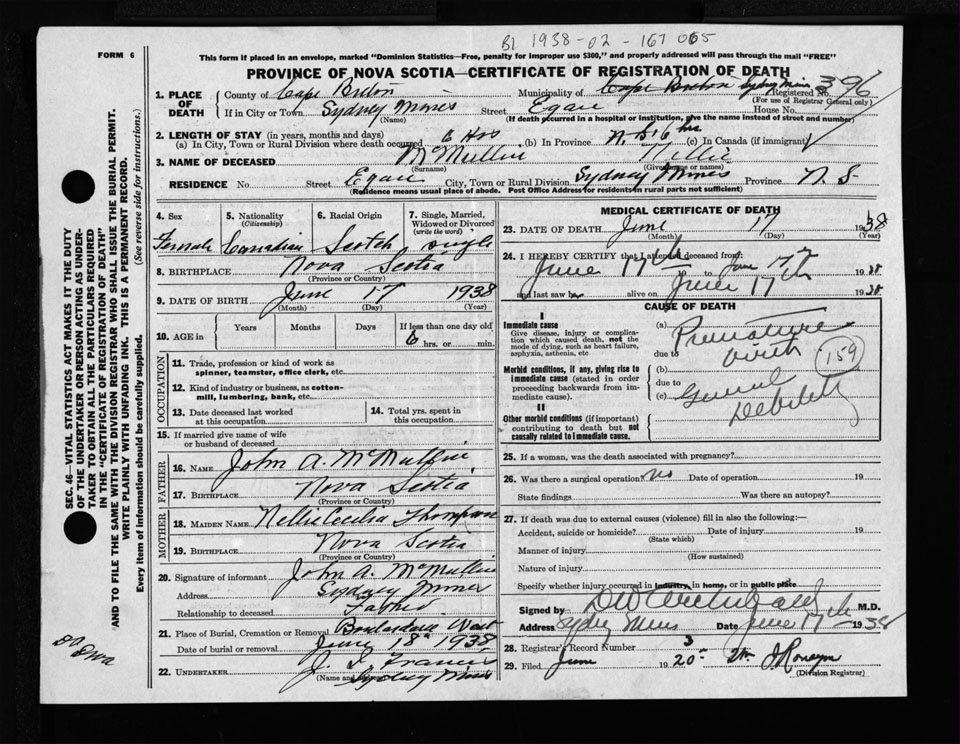 B1 1938-02-167065
FORM 6
This form if placed in an envelope, marked "Dominion Statistics—Free, penalty for improper use $300," and properly addressed will pass through the mail "FREE"
PROVINCE OF NOVA SCOTIA—CERTIFICATE OF REGISTRATION OF DEATH
1. PLACE OF DEATH
County of Cape Breton
Municipality of Cape Breton Sydney Mines Registered No. 396
(For use of Registrar General only)
If in City or Town Sydney Mines Street Egan House No.
(Name) (If death occurred in a hospital or institution, give the name instead of street and number)
2. LENGTH OF STAY (in years, months and days)
(a) In City, Town or Rural Division where death occurred 6 Hrs (b) In Province N.S. 6 hrs (c) In Canada (if immigrant)
3. NAME OF DECEASED McMullin Nellie
(Surname) (Given name or names)
RESIDENCE No. Street Egan City, Town or Rural Division Sydney Mines Province N. S
(Residence means usual place of abode. Post Office Address for residents in rural parts not sufficient)
4. Sex
Female
5. Nationality (Citizenship)
Canadian
6. Racial Origin
Scotch
7. Single, Married, Widowed or Divorced (write the word)
single
8. BIRTHPLACE Nova Scotia
(Province or Country)
9. DATE OF BIRTH June 17 1938
(Month) (Day) (Year)
10. AGE in Years Months Days If less than one day old
6 hrs. or min.
OCCUPATION
11. Trade, profession or kind of work as spinner, teamster, office clerk, etc.
12. Kind of industry or business, as cotton-mill, lumbering, bank, etc.
13. Date deceased last worked at this occupation
14. Total yrs. spent in this occupation.
15. If married give name of wife or husband of deceased
FATHER
16. NAME John A. McMullin
17. BIRTHPLACE Nova Scotia
(Province or Country)
MOTHER
18. MAIDEN NAME Nellie Cecilia Thompson
19. BIRTHPLACE Nova Scotia
(Province or Country)
20. Signature of informant John A. McMullin
Address Sydney Mines
Relationship to deceased Father
21. Place of Burial, Cremation or Removal Boularderie West
Date of burial or removal June 18th 1938
22. UNDERTAKER J. J. Francis
(Name and address) Sydney Mines
MEDICAL CERTIFICATE OF DEATH
23. DATE OF DEATH June 17 1938
(Month) (Day) (Year)
24. I HEREBY CERTIFY that I attended deceased from:
June 17th 19 to June 17th 1938
and last saw her alive on June 17th 1938
CAUSE OF DEATH
I
Immediate cause
Give disease, injury or complication which caused death, not the mode of dying, such as heart failure, asphyxia, asthenia, etc
Morbid conditions, if any, giving rise to immediate cause (stated in order proceeding backwards from immediate cause).
II
Other morbid conditions (if important) contributing to death but not causally related to immediate cause.
(a) Premature
due to birth
(b)
due to
(c) General Debility
159
25. If a woman, was the death associated with pregnancy?
26. Was there a surgical operation? No Date of operation 19
State findings Was there an autopsy?
27. If death was due to external causes (violence) fill in also the following:—
Accident, suicide or homicide? Date of injury 19
(State which)
Manner of injury
(How sustained)
Nature of injury
Specify whether injury occurred in industry, in home, or in public place
Signed by D W Archibald M.D.
Address Sydney Mines Date June 17th 1938
28. Registrar's Record Number 3
29. Filed June 1920
(Division Registrar)
SEC. 46—VITAL STATISTICS ACT MAKES IT THE DUTY
OF THE UNDERTAKER OR PERSON ACTING AS UNDER-
TAKER TO OBTAIN ALL THE PARTICULARS REQUIRED
IN THE "CERTIFICATE OF REGISTRATION OF DEATH"
AND TO FILE THE SAME WITH THE DIVISION REGISTRAR WHO SHALL ISSUE THE BURIAL PERMIT.
WRITE PLAINLY WITH UNFADING INK. THIS IS A PERMANENT RECORD.
Every item of information should be carefully supplied. (See reverse side for instructions.)